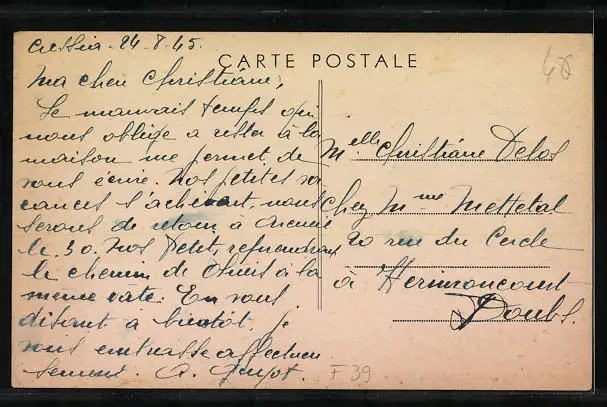 Cressia - 24-8-45.
CARTE POSTALE
48
Ma chère Christiane,
Le mauvais temps qui
nous oblige a rester à la
maison me permet de
vous écrire. Nos petites va
cances s'achèvent. nous
serons de retour à
le 30. Nos Petits, reprendront
le chemin de à la
même date. En vous
disant a bientôt je
vous embrasse affectueu
sement. A.
F 39
Melle Christiane Delos
chez Mme Mettetal
20 rue du Cercle
à Hérimoncourt
Doubs.